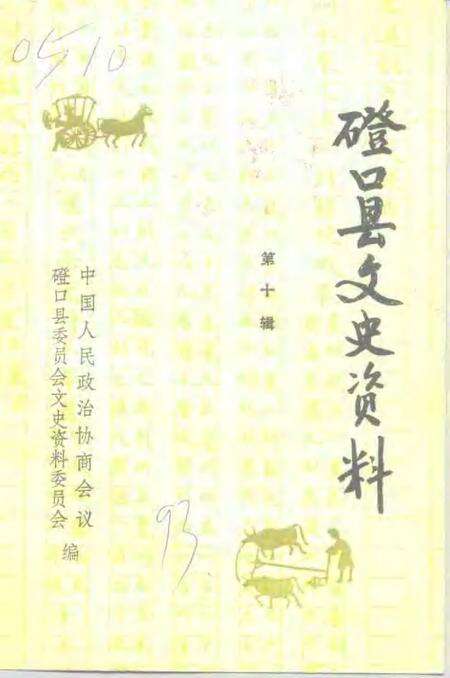 磴口县文史资料
第十辑
中国人民政治协商会议
磴口县委员会文史资料委员会
编
05/10
93